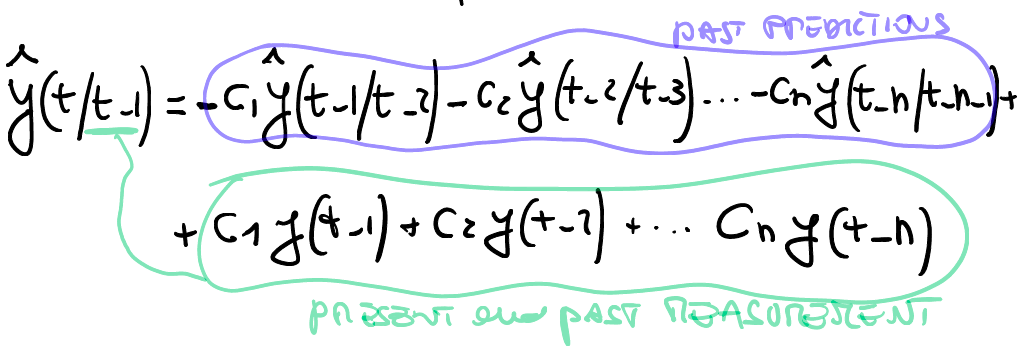 PAST PREDICTIONS
ŷ(t/t-1) = -c₁ŷ(t-1/t-2) - c₂ŷ(t-2/t-3) ... - cₙŷ(t-n/t-n-1) +
+ c₁y(t-1) + c₂y(t-2) + ... cₙy(t-n)
PRESENT and PAST MEASUREMENT